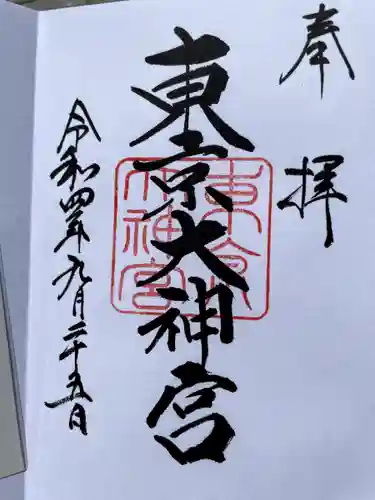 奉拝
東京大神宮
東京大神宮
令和四年九月二十五日